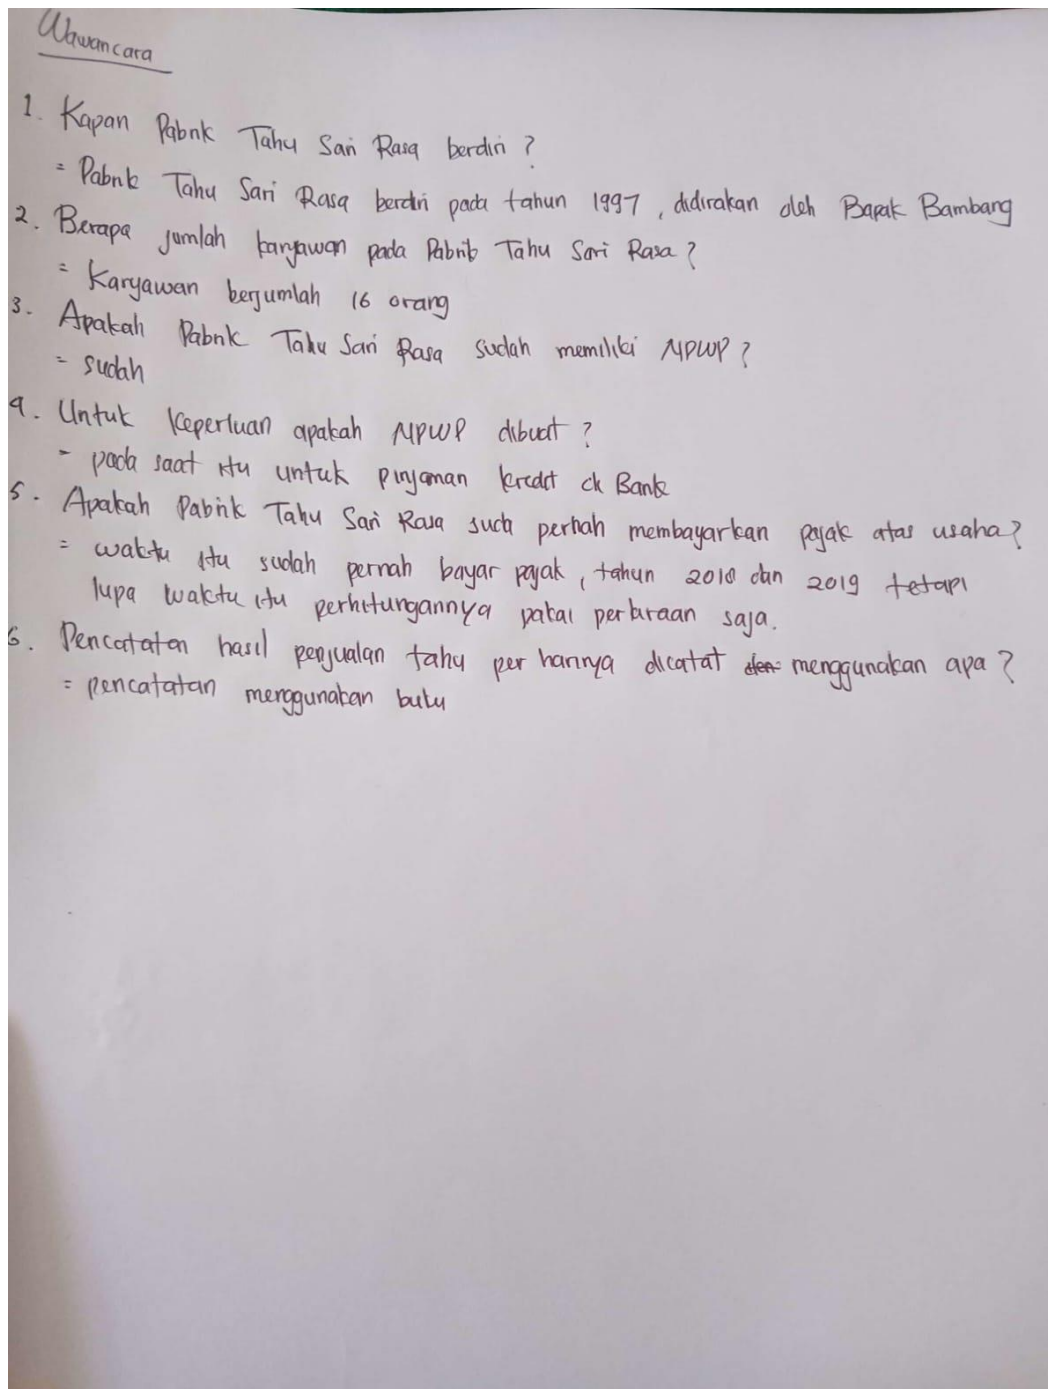 Wawancara
1. Kapan Pabrik Tahu Sari Rasa berdiri ?
= Pabrik Tahu Sari Rasa berdiri pada tahun 1997, didirakan oleh Bapak Bambang
2. Berapa jumlah karyawan pada Pabrik Tahu Sari Rasa ?
= Karyawan berjumlah 16 orang
3. Apakah Pabrik Tahu Sari Rasa sudah memiliki NPWP ?
= sudah
4. Untuk keperluan apakah NPWP dibuat ?
- pada saat itu untuk pinjaman kredit di Bank
5. Apakah Pabrik Tahu Sari Rasa suda pernah membayarkan pajak atas usaha?
= waktu itu sudah pernah bayar pajak, tahun 2018 dan 2019 tetapi
lupa waktu itu perhitungannya pakai perkiraan saja.
6. Pencatatan hasil penjualan tahu per harinya dicatat menggunakan apa ?
= pencatatan menggunakan buku